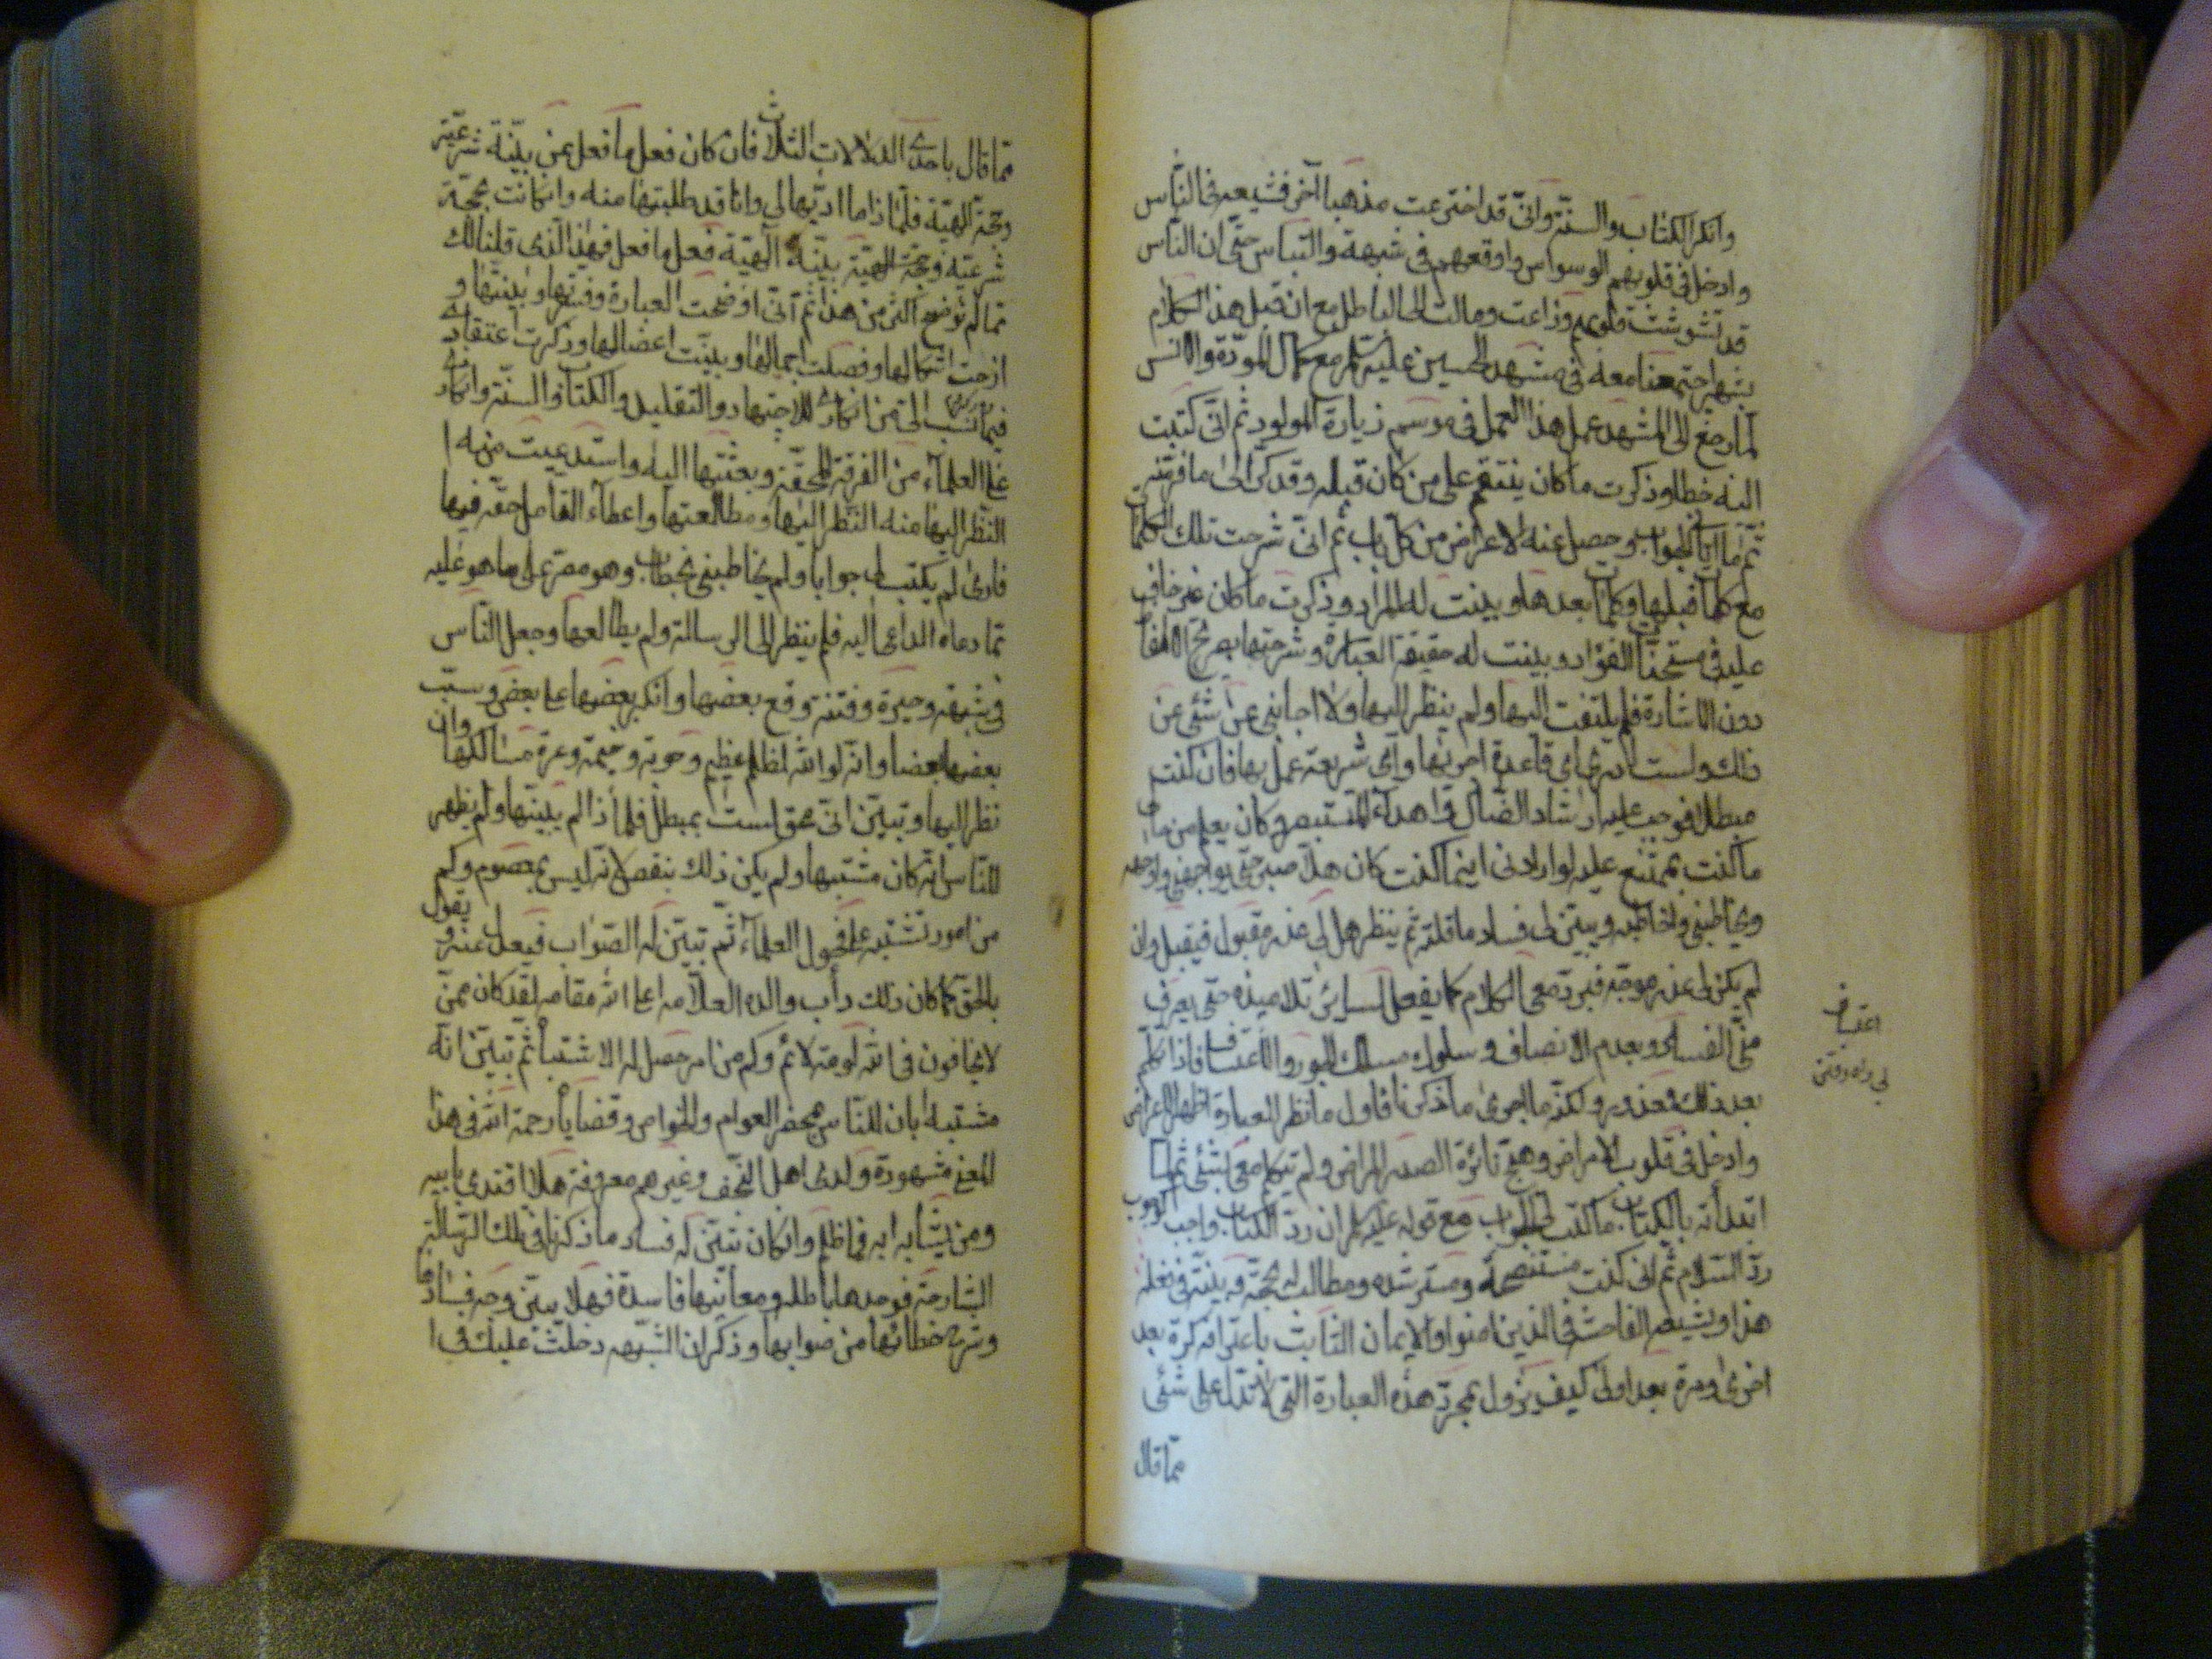 وانكر الكتاب والسنّة وانّى قد اخترعت مذهبا آخر فشيعه فى النّاس
وادخل فى قلوبهم الوسواس واوقعهم فى شبهة والتباس حتّى ان النّاس
قد تشوشت قلوبهم وزاغت ومالت الى الباطل مع ان قبل هذا الكلام
بشهر اجتمعنا معه فى مشهد الحسين عليه السلم مع كمال المودّة والانس
لما رجع الى المشهد عمل هذا العمل فى موسم زيارة المولود ثم انّى كتبت
اليه خطا وذكرت ما كان ينتقم على من كان قبله وقد
وحصل عنه الاعراض من كل باب ثم انّى شرحت تلك الكلمات
مع كلمات قبلها وكلمات بعدها وبينت له المراد وذكرت ما كان غير خاف
عليه فى الفؤاد وبينت له حقيقة العبارة وشرحتها بصريح الالفاظ
دون الاشارة فلم يلتفت اليها ولم ينظر اليها ولا اجابنى عن شئى عن
ذلك ولست ادرى باى قاعدة اجرىها واى شريعة عمل بها فان كنت
مبطلا فوجب عليه ارشاد الضال واهداء المستبصر وكان يعلم منى
ما كنت بممتنع عليه لو ارادنى اينما كنت كان هلا صبر حتّى يواجهنى واواجهه
ويخاطبنى واخاطبه ويبيّن لى فساد ما قلته ثم ينظر هل لى عذر مقبول فيقبل وان
لم يكن لى عذر موجّه فيردّ معى الكلام كما يفعل لسائر تلاميذه حتّى يعرف
منّى الفساد وبعدم الانصاف وسلوك مسلك الجور والاعتساف فاذا تكلم
بعد ذلك فمعذور ولكنّه ما اجرى ما ذكرنا فاول ما نظر العبارة اظهر الاعراض
وادخل فى قلوب الامراض وهيج نائرة الصدر المراض ولم تكلم معى بشئى ثم لما
ابتدأته بالكتاب ما كتب لى الجواب مع قوله عليه السلم ان ردّ الكتاب واجب كوجوب
ردّ السّلام ثم انى كنت مستنصحا ومسترشدا ومطالب لحجّة وبيّنة فى فعله
هذا ويشيع الفاحشة فى الذين امنوا والايمان الثابت باعترافه كرة بعد
اخرى ومرة بعد اولى كيف يزول بمجرّد هذه العبارة التى لا تدل على شئى
ممّا قال
اعتساف
بى راه رفتن
ممّا قال باحدى الدلالات الثلاث فان كان فعل ما فعل عن بيّنة شرعيّة
وحجّة الهيّة فلماذا ما ادّيها لى وانا قد طلبتها منه وان كانت بحجّة
شرعيّة وحجّة الهيّة بيّنة الهيّة فعل ما فعل فهذا الّذى قلنا لك
ممّا لم نوضح اكثر من هذا ثم انّى اوضحت العبارة وفسّرتها وبيّنتها و
ازحت اشكالها وفصلت اجمالها وبيّنت اعضالها وذكرت اعتقادى
فيما نسب الىّ من انكار الاجتهاد والتقليد والكتاب والسنّة وانكارى
على العلماء من الفرقة المحقّة وبعثتها اليه واستدعيت منه ا
النّظر اليها منه النّظر اليها ومطالعتها واعطاء التامل حقّه فيها
فارى لم يكتب لى جوابا ولم يخاطبنى بخطاب وهو مصرّ على ما هو عليه
ممّا دعاه الداعى اليه فلم ينظر الى الرسالة ولم يطالعها وجعل النّاس
فى شبهة وحيرة وفتنة وقع بعضها وانكر بعضها على بعض وسبّب
بعضها بعضا وانّه لو الله لظلم عظيم وحوبة وخيمة وعرة مسالكها وان
نظر اليها وتبيّن انّى محقّ لست بمبطل فلماذا لم يبيّنها ولم يظهر
للنّاس انّه كان مشتبها ولم يكن ذلك بنقص لانّه ليس بمعصوم وكم
من امور تشتبه على فحول العلماء ثم تبيّن له الصّواب فيعدل عنه ويقول
بالحقّ كما كان ذلك دأب والده العلّامة اعلى الله مقامه لقد كان ممّن
لا يخافون فى الله لومة لائم وكم من امر حصل له الاشتباه ثم تبيّن انّه
مشتبه ابان للنّاس بمحضر العوام والخواص وقضاياه رحمه الله فى هذا
المعنى مشهورة ولدى اهل النّجف وغيرهم معروفة هلا اقتدى بابيه
ومن يشابه ابه فما ظلم وان كان تبيّن له فساد ما ذكرنا فى تلك الرّسالة
الشارحة فوجدها باطلة ومعانيها فاسدة فهلا يبيّن وجه فسادها
وشرح خطائها من صوابها وذكر ان الشّبهة دخلت عليك فى ا